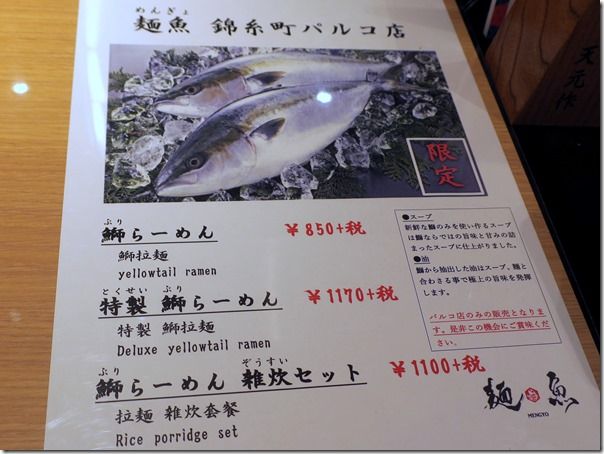 めんぎょ
麺魚 錦糸町パルコ店
限定
ぶり
鰤らーめん ￥850+税
鰤拉麺
yellowtail ramen
とくせい ぶり
特製 鰤らーめん ￥1170+税
特製 鰤拉麺
Deluxe yellowtail ramen
ぶり ぞうすい
鰤らーめん 雑炊セット ￥1100+税
拉麺 雑炊套餐
Rice porridge set
●スープ
新鮮な鰤のみを使い作るスープ
は鰤ならではの旨味と甘みの詰
まったスープに仕上がりました。
●油
鰤から抽出した油はスープ、麺と
合わさる事で極上の旨味を発揮
します。
パルコ店のみの販売となりま
す。是非この機会にご賞味くだ
さい。
麺魚
MENGYO
天元作